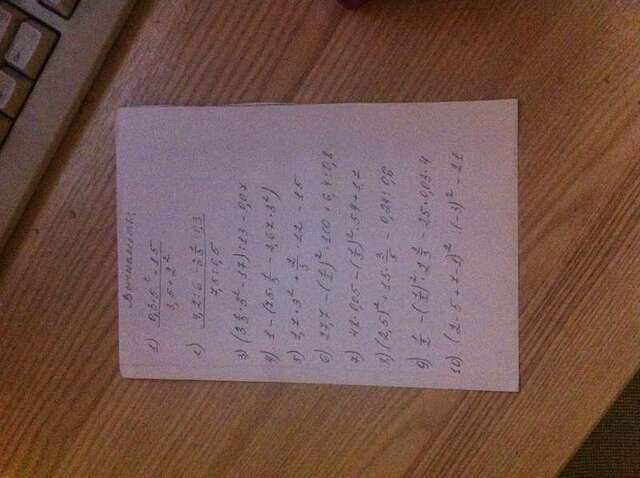 Вычислить:
1) (0,3 · 5² - 15) / (3,5 + 2²)
2) (4,2 : 6 - 3 1/3 · 0,3) / (7,5 : 0,5)
3) (3 1/3 · 3² - 17) : 13 - 0,07
4) 1 - (75 · 1/3 - 2,67 · 3²)
5) 1,7 · 3² + 2/3 · 12 - 15
6) 27,7 - (1/2)² · 100 + 6,4 : 0,8
7) 48 · 0,05 - (1/3)² · 54 + 1,7
8) (2,5)² + 15 · 3/5 - 0,24 : 0,6
9) 1/2 - (1/2)² · 2 2/3 - 25 · 0,03 · 4
10) (2 - 5 + 7 - 1)² · (-3)² - 21